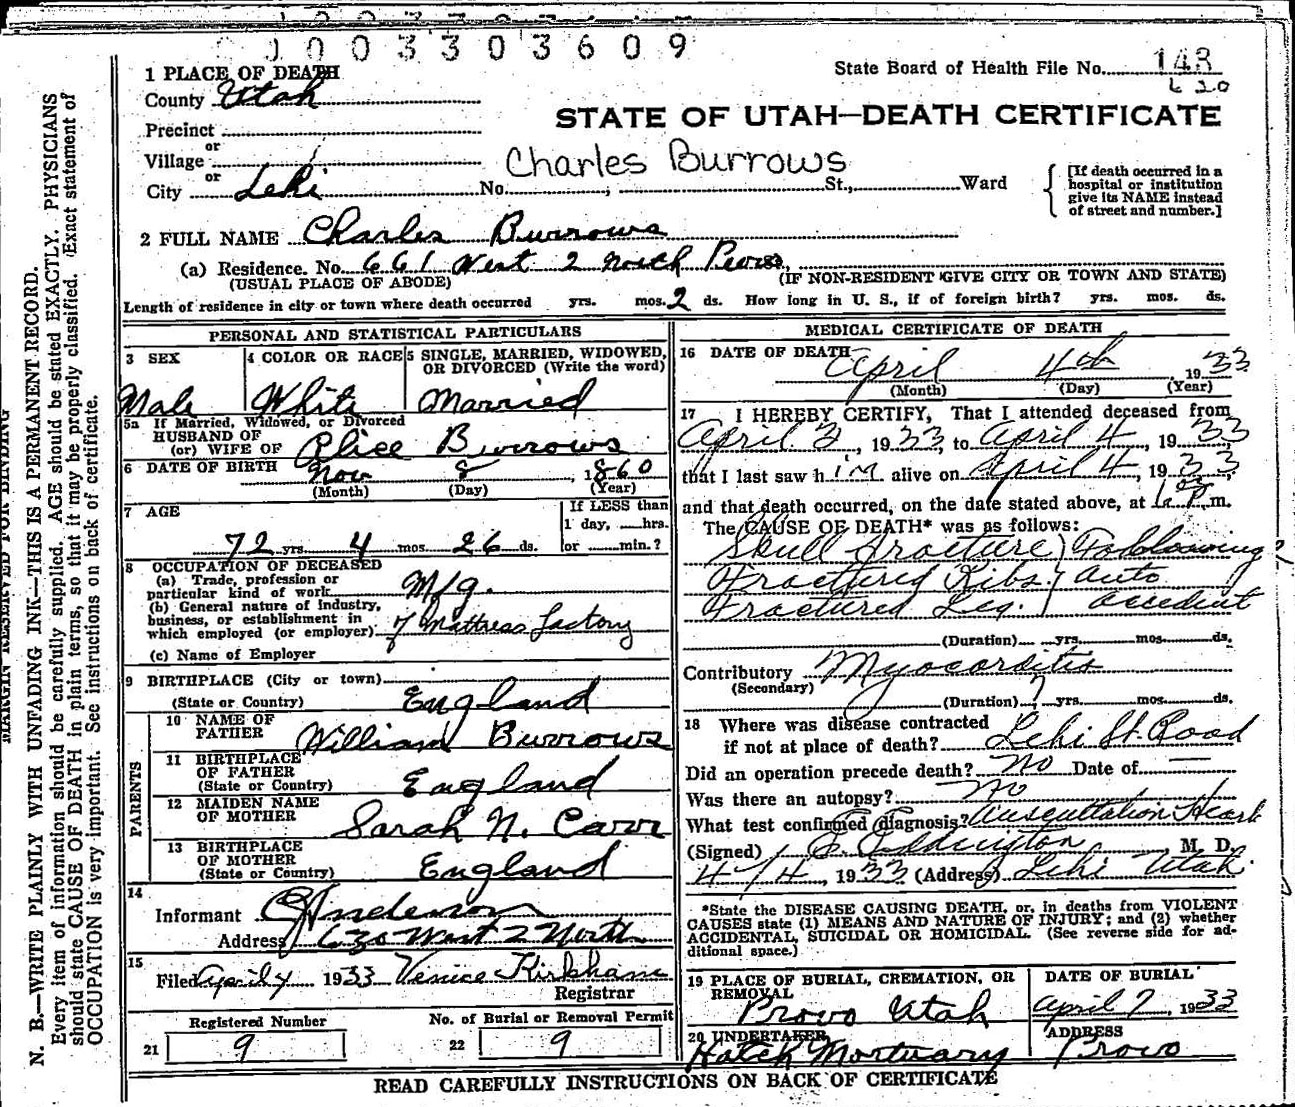 1 0 0 3 3 0 3 6 0 9
1 PLACE OF DEATH
State Board of Health File No. 143
620
County Utah
STATE OF UTAH—DEATH CERTIFICATE
Precinct
or
Village
Charles Burrows
or
City Lehi No. ; St., Ward
[If death occurred in a
hospital or institution
give its NAME instead
of street and number.]
2 FULL NAME Charles Burrows
(a) Residence. No. 661 West 2 North Provo,
(USUAL PLACE OF ABODE) (IF NON-RESIDENT GIVE CITY OR TOWN AND STATE)
Length of residence in city or town where death occurred yrs. mos. 2 ds. How long in U. S., if of foreign birth? yrs. mos. ds.
PERSONAL AND STATISTICAL PARTICULARS
3 SEX
4 COLOR OR RACE
5 SINGLE, MARRIED, WIDOWED,
OR DIVORCED (Write the word)
Male White Married
5a If Married, Widowed, or Divorced
HUSBAND OF
(or) WIFE OF Alice Burrows
6 DATE OF BIRTH Nov 8, 1860
(Month) (Day) (Year)
7 AGE
If LESS than
1 day, hrs.
72 yrs. 4 mos. 26 ds. or min.?
8 OCCUPATION OF DECEASED
(a) Trade, profession or
particular kind of work Mfg.
(b) General nature of industry,
business, or establishment in
which employed (or employer) of Mattress factory
(c) Name of Employer
9 BIRTHPLACE (City or town)
(State or Country) England
PARENTS
10 NAME OF
FATHER William Burrows
11 BIRTHPLACE
OF FATHER
(State or Country) England
12 MAIDEN NAME
OF MOTHER Sarah N. Carr
13 BIRTHPLACE
OF MOTHER
(State or Country) England
14
Informant Anderson
Address 630 West 2 North
15
Filed April 4 1933 Venice Kirkham
Registrar
Registered Number
No. of Burial or Removal Permit
21 9 22 9
MEDICAL CERTIFICATE OF DEATH
16 DATE OF DEATH April 4th 1933
(Month) (Day) (Year)
17 I HEREBY CERTIFY, That I attended deceased from
April 2, 1933, to April 4, 1933,
that I last saw h im alive on April 4, 1933,
and that death occurred, on the date stated above, at m.
The CAUSE OF DEATH* was as follows:
Skull fracture } Following
Fractured Ribs } auto
Fractured Leg. } accident
(Duration) yrs. mos. ds.
Contributory Myocarditis
(Secondary)
(Duration) ? yrs. mos. ds.
18 Where was disease contracted
if not at place of death? Lehi St. Road
Did an operation precede death? No Date of —
Was there an autopsy? No
What test confirmed diagnosis? Auscultation Heart
(Signed) Eddington, M. D.
4/4, 1933 (Address) Lehi Utah
*State the DISEASE CAUSING DEATH, or, in deaths from VIOLENT
CAUSES state (1) MEANS AND NATURE OF INJURY; and (2) whether
ACCIDENTAL, SUICIDAL OR HOMICIDAL. (See reverse side for ad-
ditional space.)
19 PLACE OF BURIAL, CREMATION, OR
REMOVAL
Provo Utah
DATE OF BURIAL
April 7, 1933
20 UNDERTAKER
Hatch Mortuary
ADDRESS
Provo
READ CAREFULLY INSTRUCTIONS ON BACK OF CERTIFICATE
MARGIN RESERVED FOR BINDING
N. B.—WRITE PLAINLY WITH UNFADING INK—THIS IS A PERMANENT RECORD.
Every item of information should be carefully supplied. AGE should be stated EXACTLY. PHYSICIANS
should state CAUSE OF DEATH in plain terms, so that it may be properly classified. Exact statement of
OCCUPATION is very important. See instructions on back of certificate.